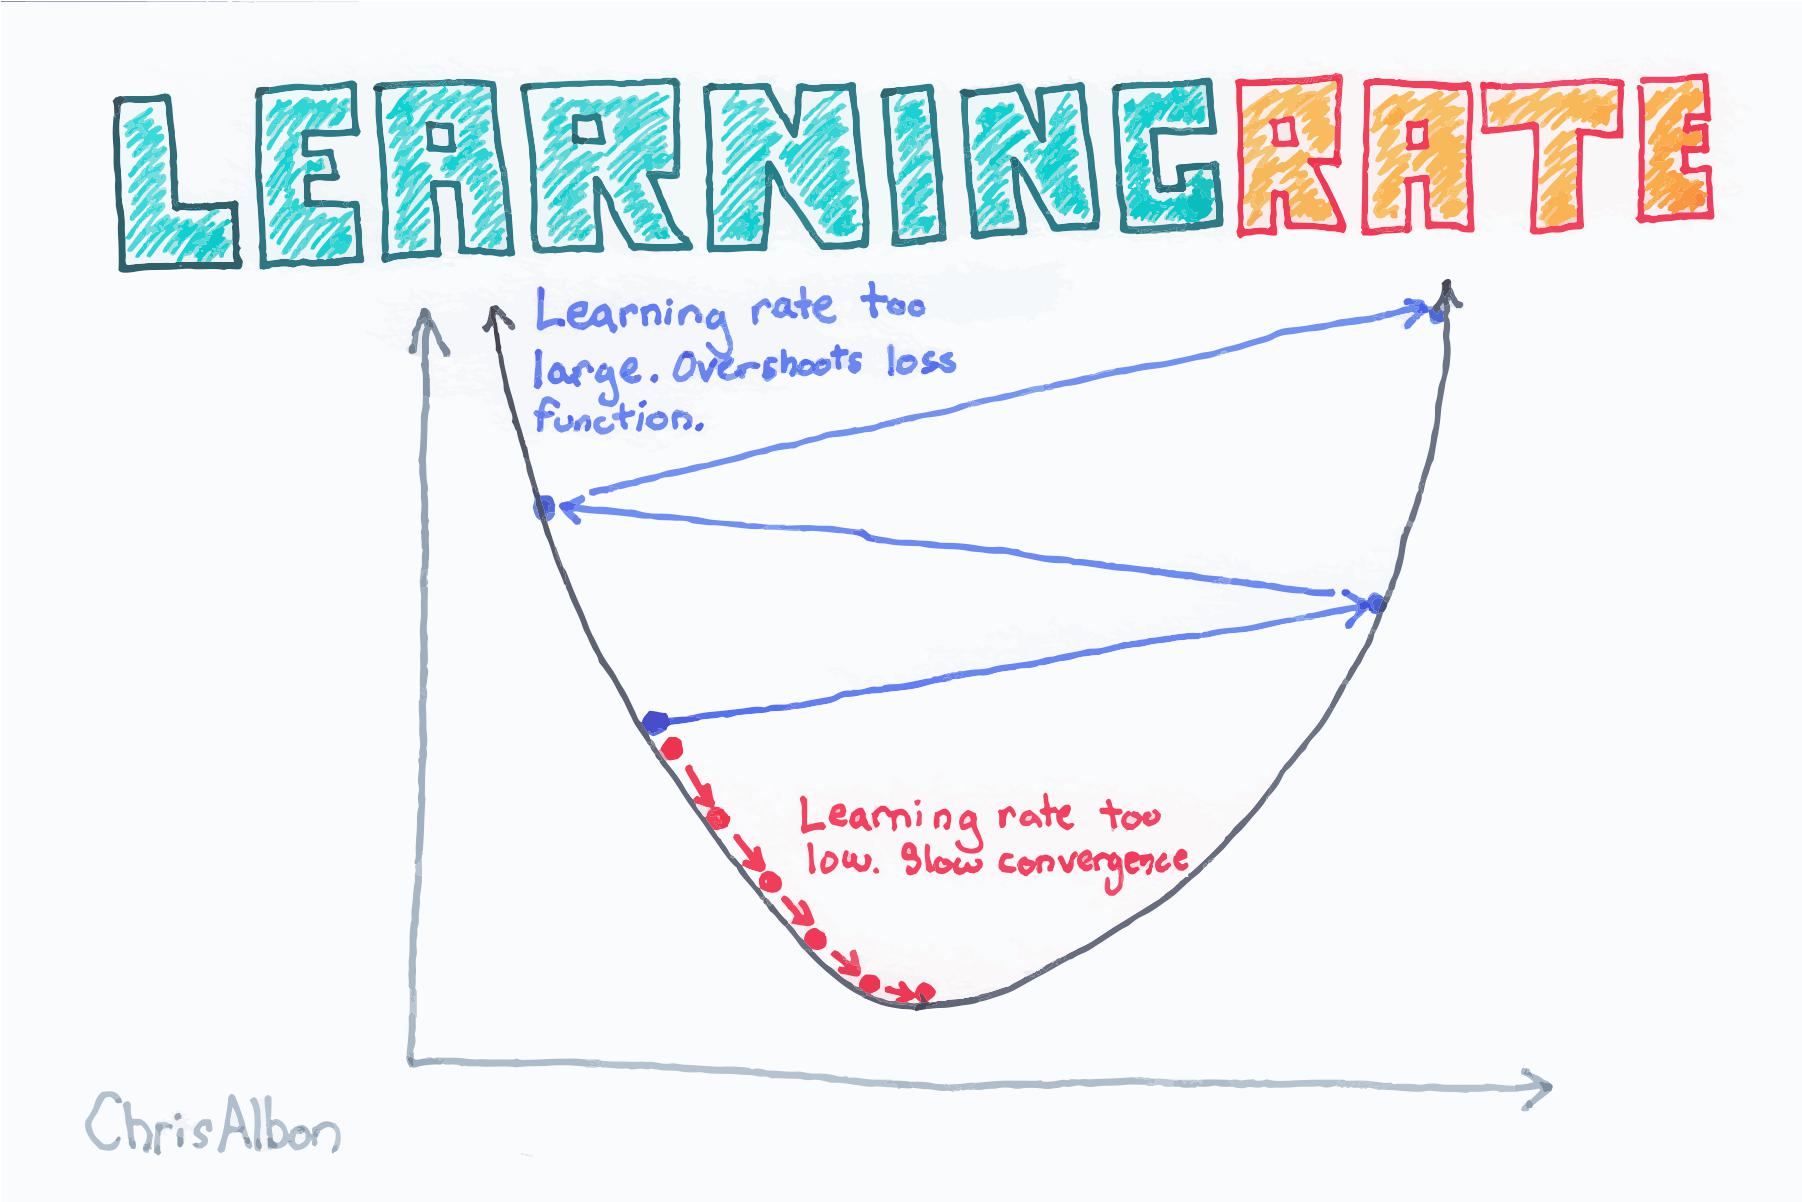 LEARNING RATE
Learning rate too
large. Overshoots loss
function.
Learning rate too
low. Slow convergence
ChrisAlbon